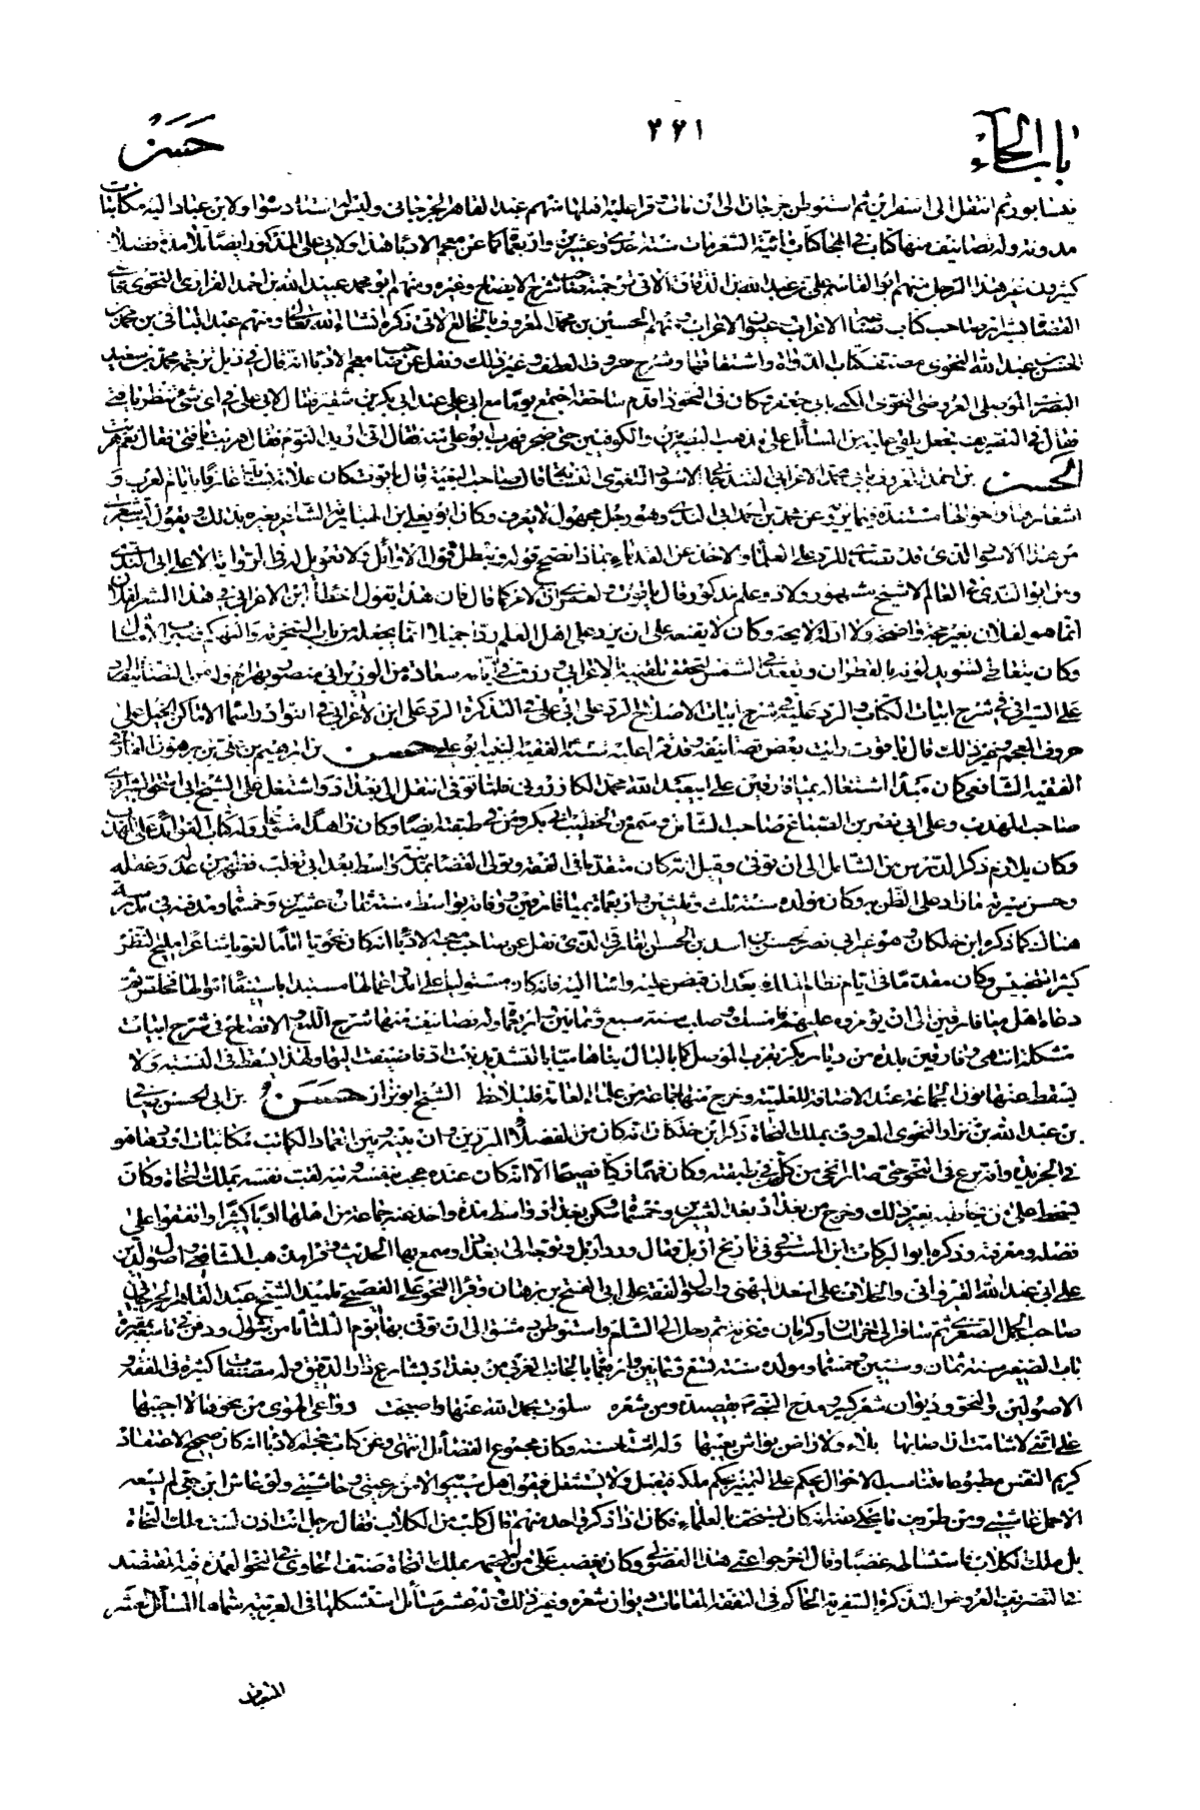 باب الحاء
٢٢١
حسن
نيسابور ثم انتقل الى اسفراين ثم استوطن جرجان الى ان مات قرا عليه اهلها منهم عبد القاهر الجرجاني وليس له استاد سواه ولابن عباد اليه مكاتبات
مدونة وله تصانيف منها كتاب في الهجا كتاب ابيه الشعر مات سنة احدى وعشرين واربعمائة كما عن معجم الادبا هذا ولابي على المذكور ايضا تلامذة فضلا
كثيرون غير هذا الرجل منهم ابو القاسم على بن عبد الله الدقاق الاتي ترجمته صاحب شرح الايضاح وغيره ومنهم ابو محمد عبيد الله بن احمد الفزاري النحوي قاضي
القضاة بشيراز صاحب كتاب صناعة الاعراب عيون الاعراب ومنهم الحسين بن محمد المعروف بالخالع الاتي ذكره انشاء الله تعالى ومنهم عبد الباقي بن محمد بن
الحسن بن عبد الله النحوي مصنف كتاب الدواة واشتقاقها وشرح حروف العطف وغير ذلك ونقل عن صاحب معجم الادبا انه قال في ذيل ترجمة محمد بن سعيد
البصير الموصلي العروضي النحوي المكنى بابي جعفر وكان في النحو ذا قدم سابقة اجتمع يوما مع ابي على عند ابي بكر بن شقير فقال لابي على في اى شئ تنظر يا فتى
فقال في التصريف فجعل يلقى عليه من المسائل على مذهب البصريين والكوفيين حتى ضجر فهرب ابو على منه فقال انى اريد النوم فقال هربت يا فتى فقال نعم هربت
الحسن بن احمد المعروف بابي محمد الاعرابي الغندجاني الاسود اللغوي النسابة قال صاحب البغية قال ياقوت كان علامة نسابة عارفا بايام العرب و
اشعارها واحوالها مستنده فيما يرويه عن محمد بن احمد ابي الندى وهو رجل مجهول لا يعرف وكان ابو يعلى بن الهبارية الشاعر يعيره بذلك ويقول ليت شعري
من هذا الاسود الذي قد تصدى للرد على العلماء والاخذ عن القدماء بماذا نصحح قوله ونبطل قول الاوائل ولا تعويل له في الرواية الا على ابي الندى
ومن ابو الندى في العالم لا شيخ مشهور ولا ذو علم مذكور قال ياقوت ولعمري ان الامر كما قال فان هذا يقول اخطأ ابن الاعرابي في هذا الشعر لفلان
انما هو لفلان بغير حجة واضحة ولا ادلة لايحة وكان لا يقنعه على ان يرد على اهل العلم ردا جميلا انما يجعله من باب السخرية والتهكم وضرب الامثال
وكان يتعاطى تسويد لونه بالقطران ويقعد في الشمس ليتحقق تلقيبه بالاعرابي ورزق في ايامه سعادة من الوزير ابي منصور بهرام وله من التصانيف الرد
على السيرافي في شرح ابيات الكتاب والرد عليه في شرح ابيات الاصلاح الرد على ابي على في التذكرة الرد على ابن الاعرابي في النوادر اسماء الاماكن الخيل على
حروف المعجم وغير ذلك قال ياقوت رايت بعض تصانيفه وقد قرا عليه سنة الفقيه النبيه ابو على حسن بن ابرهيم بن على بن برهون الفارقي
الفقيه الشافعي كان مبدأ اشتغاله بميافارقين على ابي عبد الله محمد الكازروني فلما توفي انتقل الى بغداد واشتغل على الشيخ ابي اسحق الشيرازي
صاحب المهذب وعلى ابي نصر بن الصباغ صاحب الشامل وسمع من الخطيب ابي بكر وفي طبقته ايضا وكان زاهدا متورعا وله كتاب الفوائد على المهذب
وكان يلازم ذكر الدرس من الشامل الى ان توفي وقيل انه كان متقدما في الفقه وتولى القضا بمدينة واسط بعد ابي تغلب فظهر من عدله وعقله
وحسن سيرته ما زاد على الظن به وكان مولده سنة ثلث وثلثين واربعمائة بميافارقين وتوفي بواسط سنة ثمان وعشرين وخمسمائة ومدفنه في مدرسته
هناك كما ذكره ابن خلكان وهو غير ابي نصر حسن بن اسد بن الحسن الفارقي الذي نقل عن صاحب معجم الادبا انه كان نحويا اماما لغويا شاعرا مليح النظم
كثير التجنيس وكان مقدما في ايام نظام الملك بعد ان قبض عليه واساء اليه فانه كان مستوليا على امد واعمالها مستبدا باستيفاء اموالها فخلصه ثم
دعاه اهل ميافارقين الى ان يؤمروه عليهم فامسك وصلب سنة سبع وثمانين واربعمائة وله تصانيف منها شرح اللمع الافصاح في شرح ابيات
مشكلة انتهى وفارقين بلدة من ديار بكر بقرب الموصل كما بالبال بناها ميا بالتشديد بنت اد فاضيفت اليها ولهذا يسقط في النسبة ولا
يسقط عنها نون الجماعة عند الاضافة للغلبة وخرج منها جماعة من علماء العامة فليلاحظ الشيخ ابو نزار حسن بن ابي الحسن صافي
بن عبد الله بن نزار النحوي المعروف بملك النحاة ذكر ابن خلكان انه كان من الفضلاء المبرزين وان بينه وبين العماد الكاتب مكاتبات اوردها هو
في الخريدة وانه برع في النحو حتى صار انحى من كل من في طبقته وكان فهما ذكيا فصيحا الا انه كان عنده عجب بنفسه وتيه لقب نفسه بملك النحاة وكان
يسخط على من يخاطبه بغير ذلك وخرج من بغداد بعد العشرين وخمسمائة وسكن بغداد واسط مدة واخذ عنه جماعة من اهلها ادبا كثيرا واتفقوا على
فضله ومعرفته وذكره ابو البركات ابن المستوفي في تاريخ اربل فقال ورد اربل وتوجه الى بغداد وسمع بها الحديث وقرا مذهب الشافعي واصول الدين
على ابي عبد الله القيرواني والخلاف على اسعد الميهني واصول الفقه على ابي الفتح بن برهان وقرأ النحو على الفصيحي تلميذ الشيخ عبد القاهر الجرجاني
صاحب الجمل الصغرى ثم سافر الى خراسان وكرمان وغزنة ثم رحل الى الشام واستوطن دمشق الى ان توفي بها يوم الثلثا ثامن شوال ودفن تاسعه بمقبرة
باب الصغير سنة ثمان وستين وخمسمائة ومولده سنة تسع وثمانين واربعمائة بالجانب الغربي من بغداد بشارع دار الدقيق وله مصنفات كثيرة في الفقه و
الاصولين والنحو وديوان شعر كبير ومدح النبي ص بقصيدة ومن شعره سلوت بحمد الله عنها واصبحت دواعي الهوى من نحوها لا اجيبها
على انني لا شامت ان اصابها بلاء ولا راض بواش يعيبها وله اشياء حسنة وكان مجموع الفضائل انتهى وعن كتاب معجم الادبا انه كان صحيح الاعتقاد
كريم النفس مطبوعا متناسب الاحوال يحكم على اهل التمييز بحكم ملكه فيقبل ولا يستثقل فيقول هل سيبويه الا من رعيتي وحاشيتي ولو عاش ابن جني لم يسعه
الا حمل غاشيتي ومن طريف ما يحكى عنه انه كان يستخف بالعلماء فكان اذا ذكر واحد منهم قال كلب من الكلاب فقال رجل انت اذن لست ملك النحاة
بل ملك الكلاب فاستشاط غضبا وقال اخرجوا عني هذا الفضولي وكان يغضب على من لم يسمه بملك النحاة صنف الحاوي في النحو العمدة فيه المقتصد
في التصريف العروض التذكرة السفرية الحاكم في الفقه المقامات ديوان شعره وغير ذلك وله عشر مسائل استشكلها في العربية سماها المسائل العشر